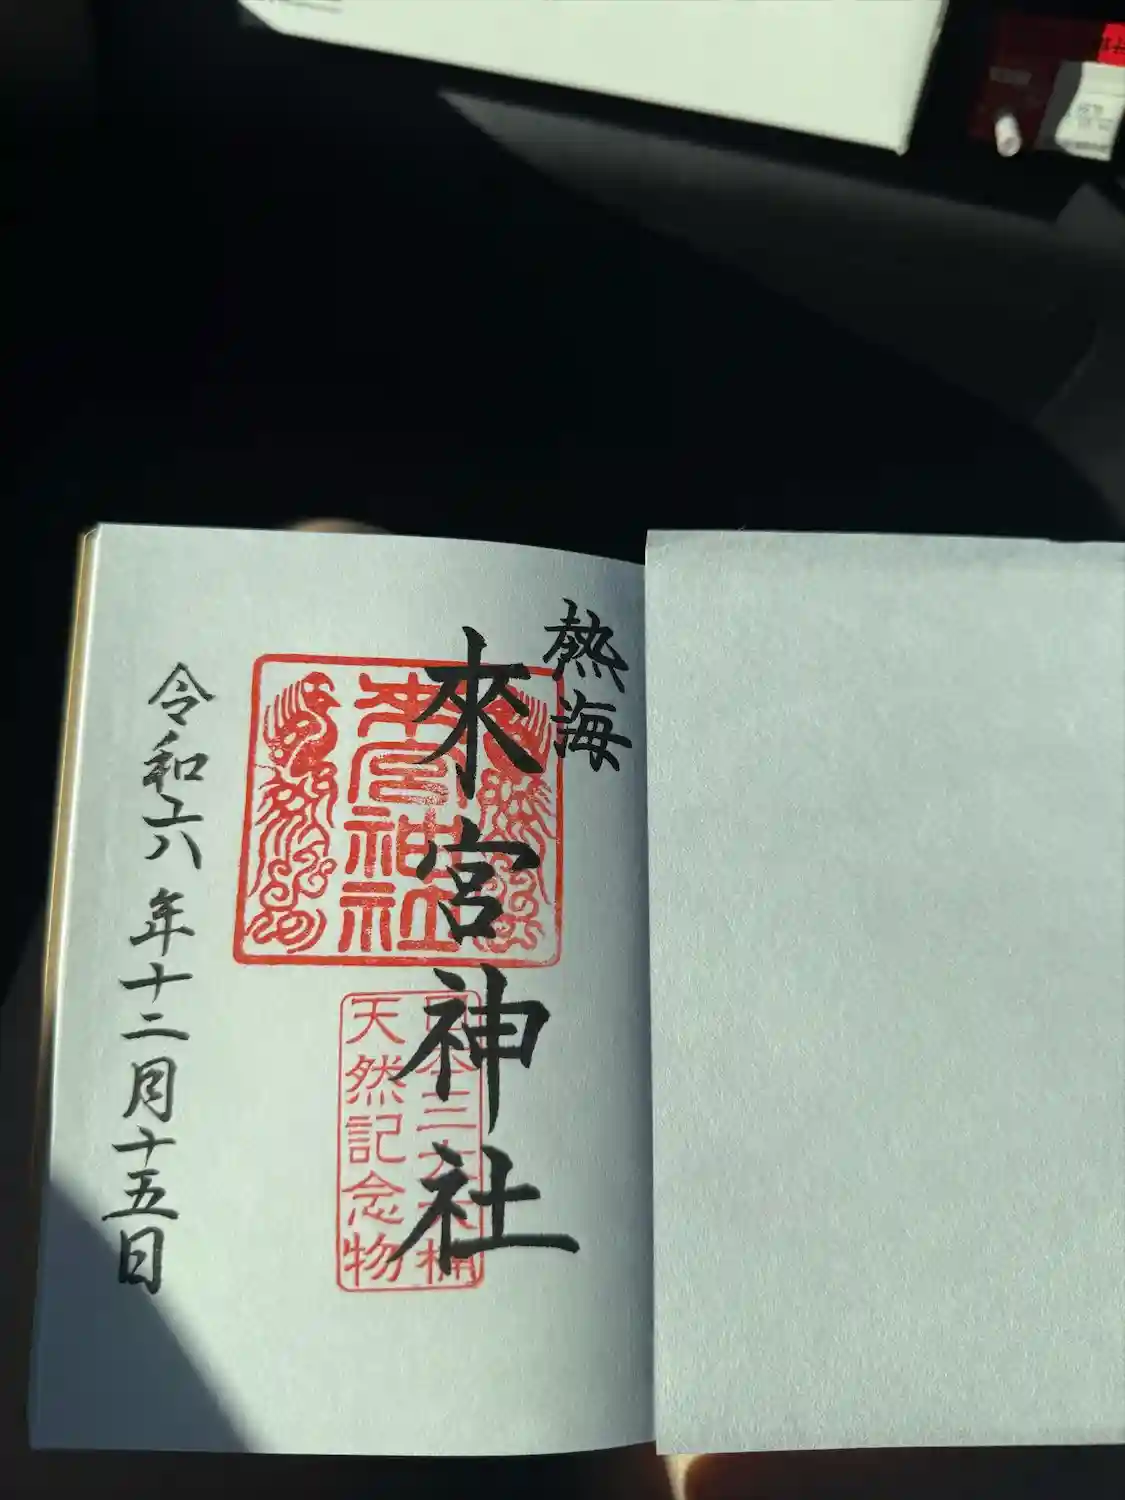 熱海
來宮神社
来宮神社
日本三大大楠
天然記念物
令和六年十二月十五日